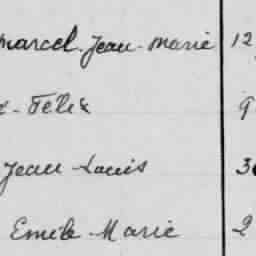 marcel. Jean-Marie 12
x-Félix 9
Jean-Louis 3
Emile-Marie 2